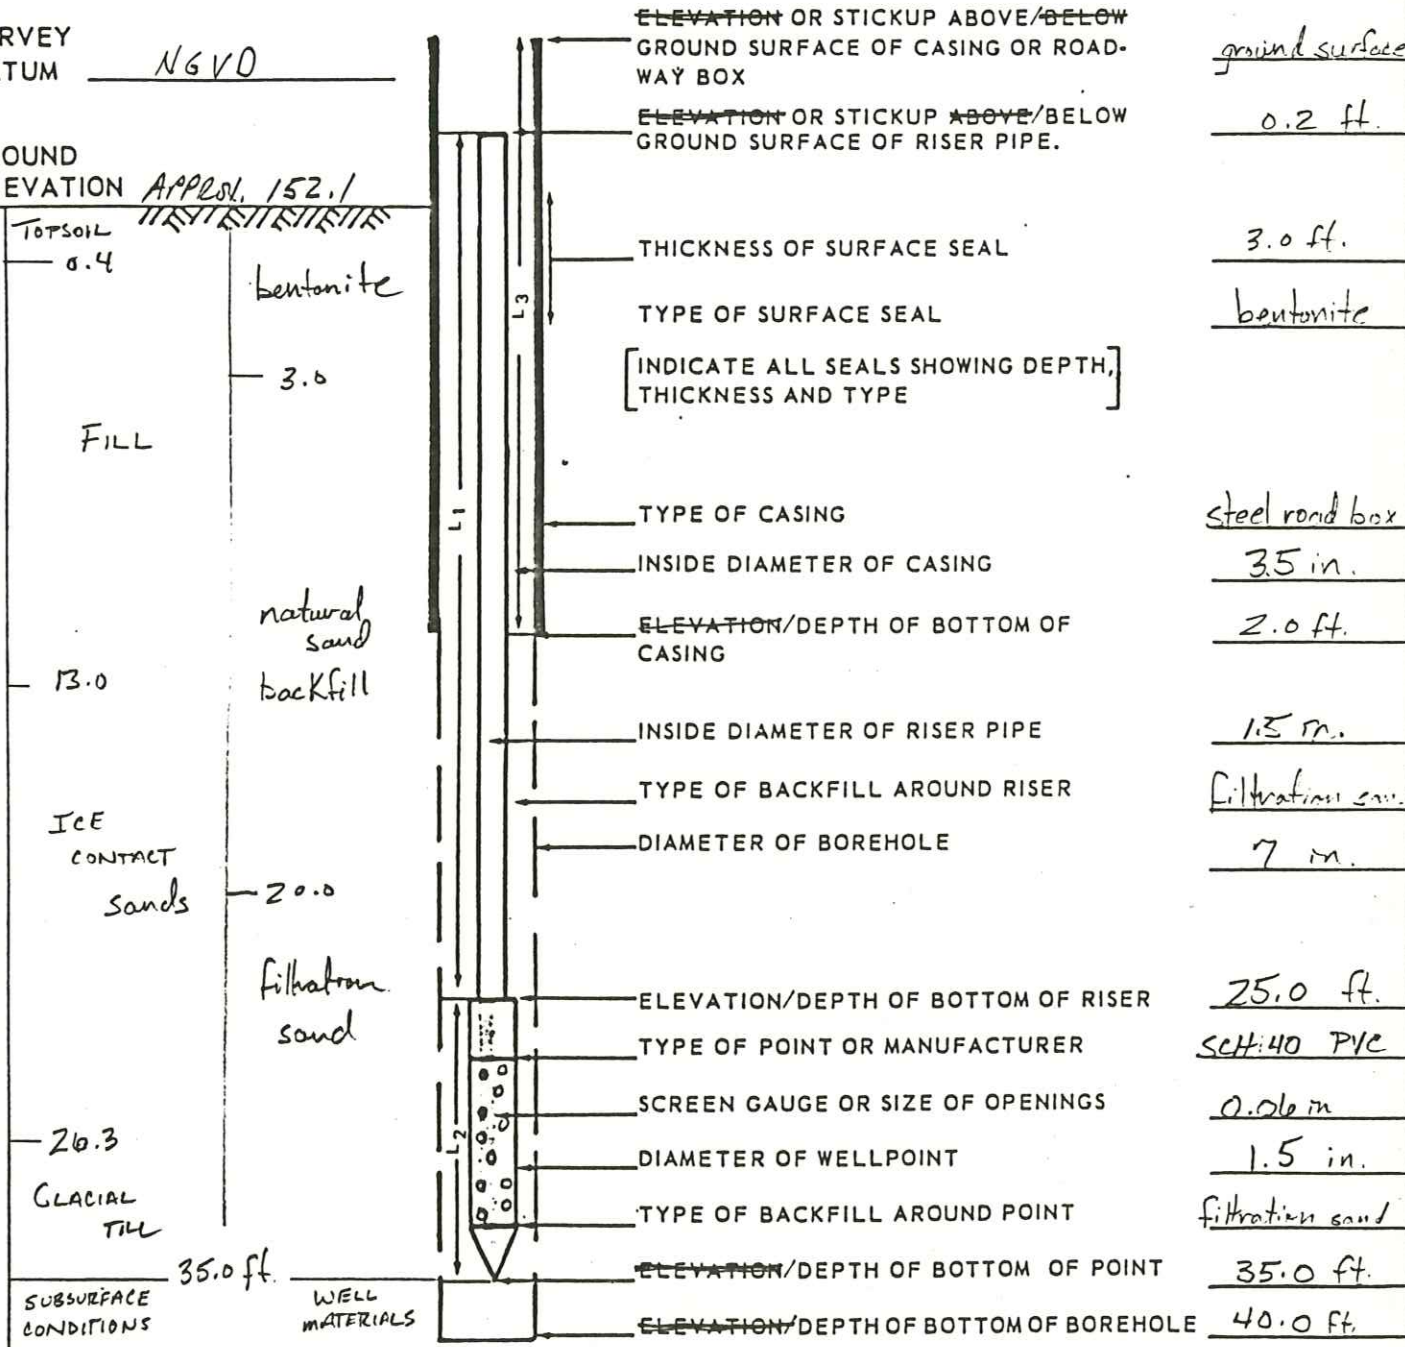 RVEY
TUM NGVD
OUND
EVATION APPROX. 152.1
TOPSOIL
0.4
bentonite
3.0
FILL
natural
sand
backfill
13.0
ICE
CONTACT
sands
20.0
filtration
sand
26.3
GLACIAL
TILL
35.0 ft.
SUBSURFACE
CONDITIONS
WELL
MATERIALS
L1
L3
L2
ELEVATION OR STICKUP ABOVE/BELOW
GROUND SURFACE OF CASING OR ROAD-
WAY BOX
ground surface
ELEVATION OR STICKUP ABOVE/BELOW
GROUND SURFACE OF RISER PIPE.
0.2 ft.
THICKNESS OF SURFACE SEAL
3.0 ft.
TYPE OF SURFACE SEAL
bentonite
[INDICATE ALL SEALS SHOWING DEPTH,
THICKNESS AND TYPE]
TYPE OF CASING
steel road box
INSIDE DIAMETER OF CASING
3.5 in.
ELEVATION/DEPTH OF BOTTOM OF
CASING
2.0 ft.
INSIDE DIAMETER OF RISER PIPE
1.5 in.
TYPE OF BACKFILL AROUND RISER
filtration
DIAMETER OF BOREHOLE
7 in.
ELEVATION/DEPTH OF BOTTOM OF RISER
25.0 ft.
TYPE OF POINT OR MANUFACTURER
SCH. 40 PVC
SCREEN GAUGE OR SIZE OF OPENINGS
0.06 in
DIAMETER OF WELLPOINT
1.5 in.
TYPE OF BACKFILL AROUND POINT
filtration sand
ELEVATION/DEPTH OF BOTTOM OF POINT
35.0 ft.
ELEVATION/DEPTH OF BOTTOM OF BOREHOLE
40.0 ft.